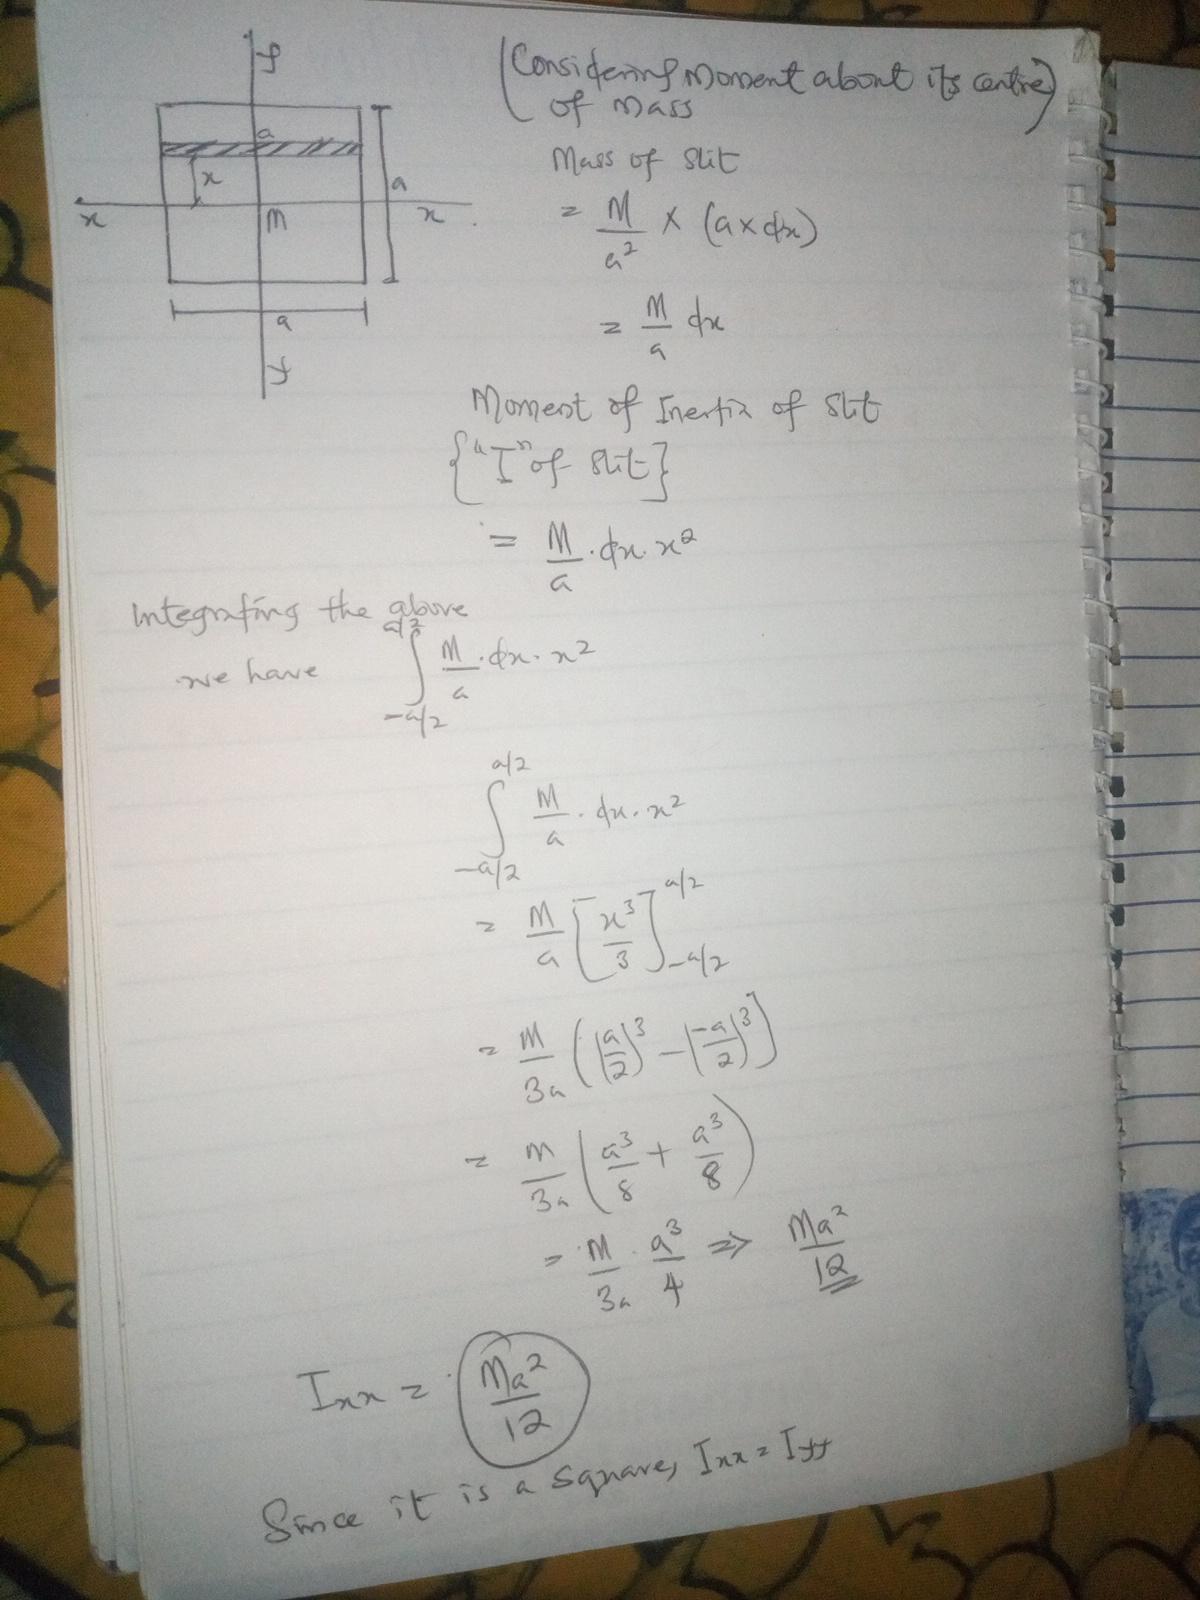 y
(Considering Moment about its centre)
of mass
a
x
a
x
M
x
a
y
Mass of slit
= M/a² × (a×dx)
= M/a dx
Moment of Inertia of slit
{"I" of slit}
= M/a . dx. x²
Integrating the above
we have ∫_{-a/2}^{a/2} M/a . dx . x²
∫_{-a/2}^{a/2} M/a . dx . x²
= M/a [x³/3]_{-a/2}^{a/2}
= M/3a ((a/2)³ - (-a/2)³)
= M/3a (a³/8 + a³/8)
= M/3a . a³/4 => Ma²/12
Ixx = Ma²/12
Since it is a square, Ixx = Iyy